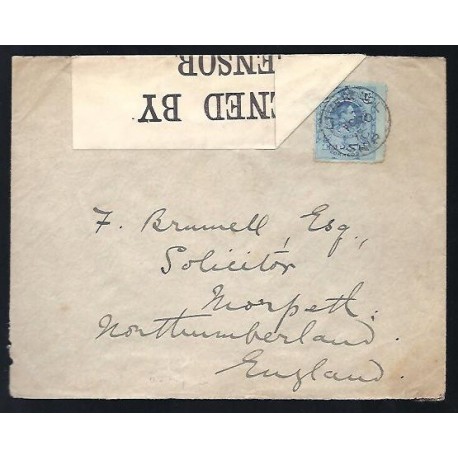 ENSOR.
NED BY
F. Brumell, Esq.,
Solicitor
Morpeth.
Northumberland.
England.